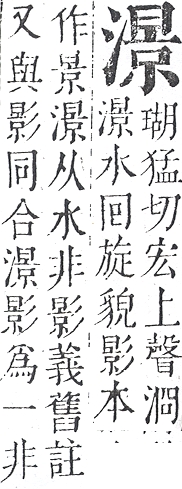 澋
瑚猛切宏上聲浻
澋水囘旋貌影本
作景澋从水非影義舊註
又與影同合澋影爲一非